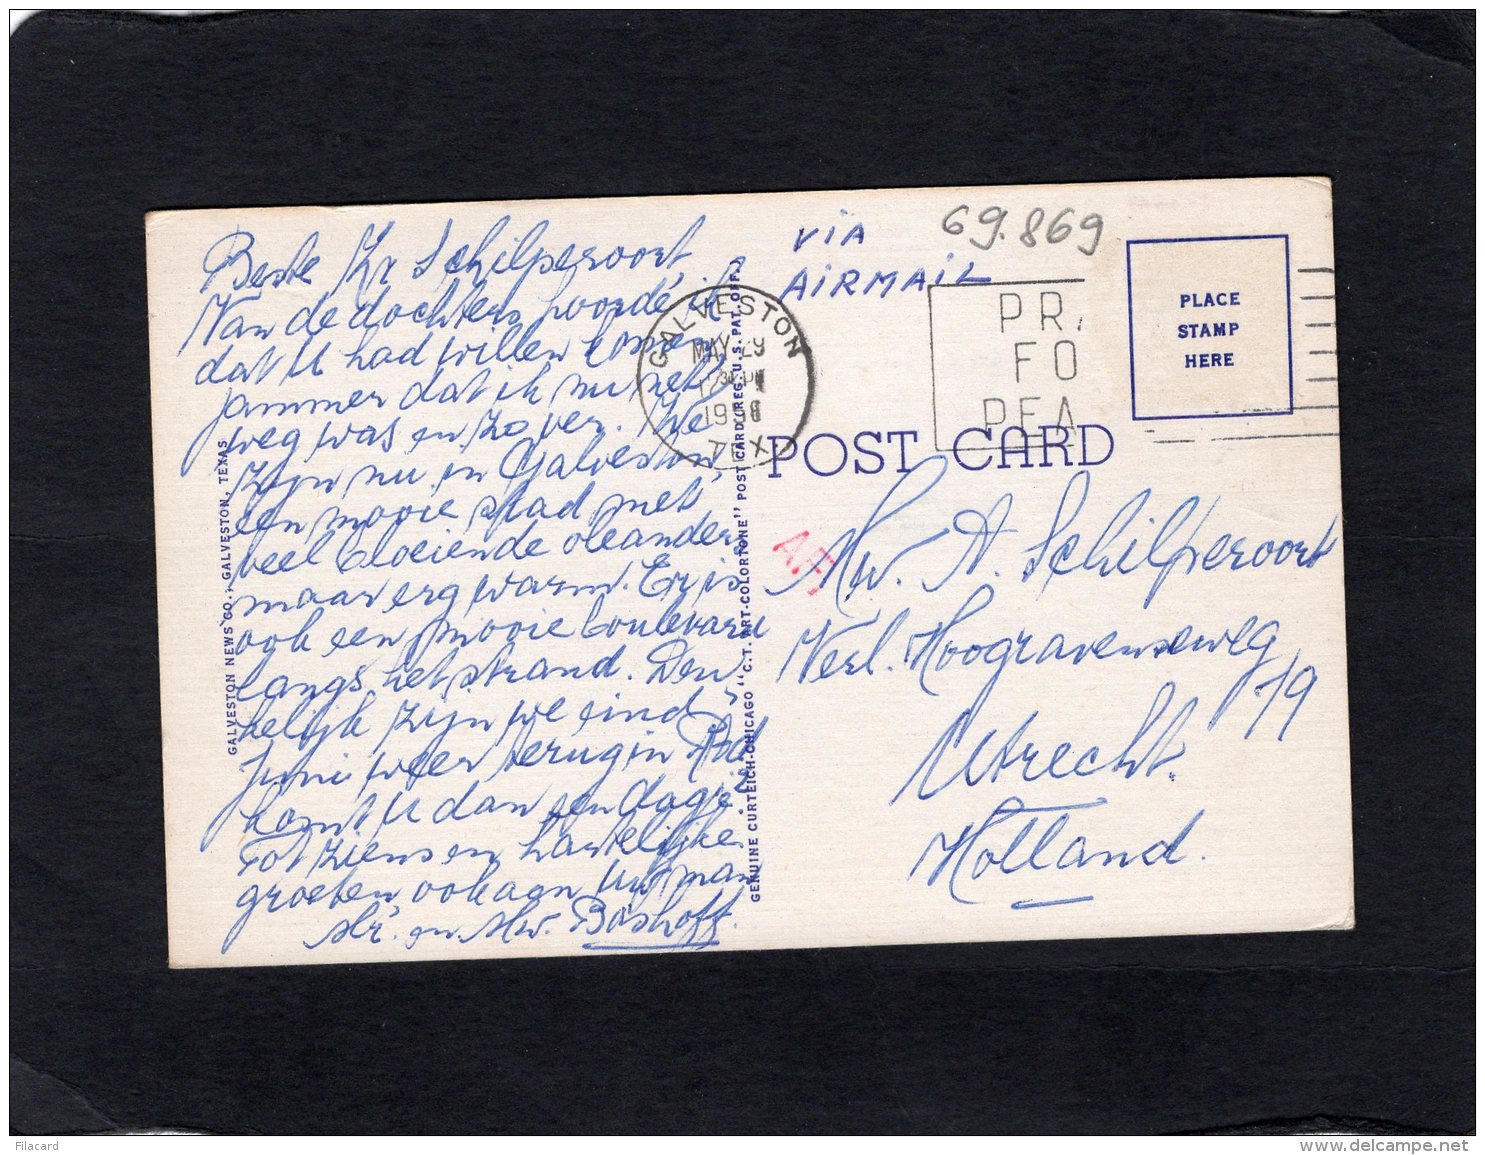 Beste Zr Schilperoort,
Van de dochters hoorde ik
dat U had willen komen
jammer dat ik nu net
weg was en zo ver. We
zijn nu in Galveston,
een mooie stad met
veel bloeiende oleander
maar erg warm. Er is
ook een mooie boulevard
langs het strand. Den-
kelijk zijn we eind
Juni weer terug in
komt U dan een dagje?
Tot ziens en hartelijke
groeten, ook aan Uw man
Mr. en Mw. Boshoff.
GALVESTON NEWS CO., GALVESTON, TEXAS
GENUINE CURTEICH-CHICAGO "C.T. ART-COLORTONE" POST CARD (REG. U.S. PAT. OFF.)
VIA
AIRMAIL
69.869
GALVESTON
MAY 29
PM
TEX
PR
FO
PEA
PLACE
STAMP
HERE
POST CARD
Mw. A. Schilperoort
Verl. Hoogravenseweg
Utrecht.
Holland.
Filacard
www.delcampe.net